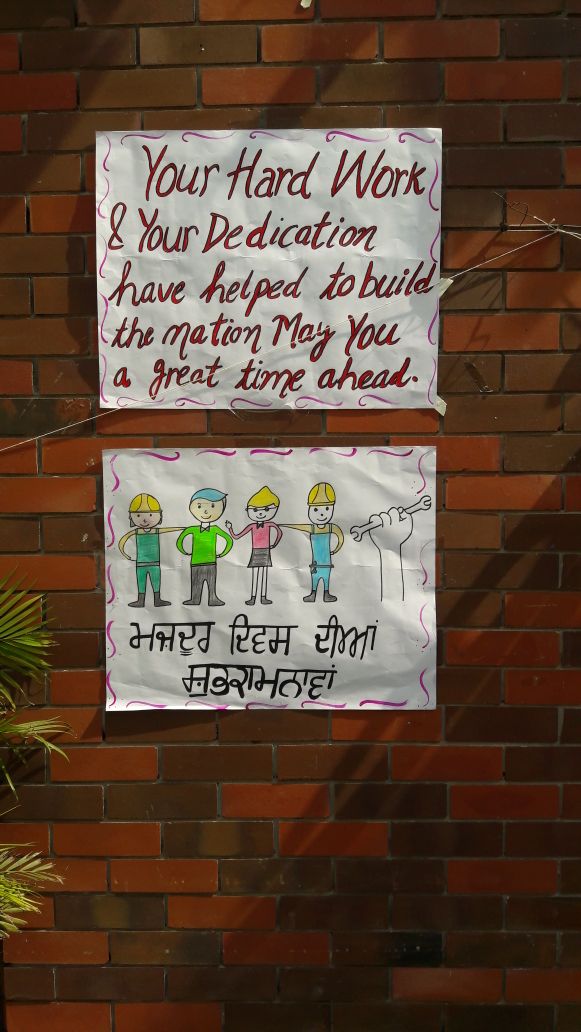 Your Hard Work
& Your Dedication
have helped to build
the nation May You
a great time ahead.
ਮਜ਼ਦੂਰ ਦਿਵਸ ਦੀਆਂ
ਸ਼ੁਭਕਾਮਨਾਵਾਂ